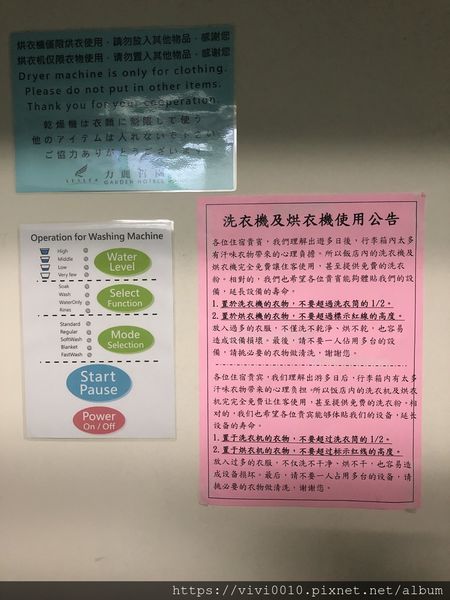 烘衣機僅限烘衣使用，請勿放入其他物品，感謝您
烘衣机仅限衣物使用，请勿置入其他物品，感谢您
Dryer machine is only for clothing.
Please do not put in other items.
Thank you for your cooperation.
乾燥機は衣類に制限して使う
他のアイテムは入れないで下さい
ご協力ありがとうございます
力麗哲園
GARDEN HOTELS
Operation for Washing Machine
High
Middle
Low
Very few
Water
Level
Soak
Wash
WaterOnly
Rines
Select
Function
Standard
Regular
SoftWash
Blanket
FastWash
Mode
Selection
Start
Pause
Power
On / Off
洗衣機及烘衣機使用公告
各位住宿貴賓，我們理解出遊多日後，行李箱內太多
有汗味衣物帶來的心理負擔。所以飯店內的洗衣機及
烘衣機完全免費讓住客使用，甚至提供免費的洗衣
粉。相對的，我們也希望各位貴賓能夠體貼我們的設
備，延長設備的壽命。
1. 置於洗衣機的衣物，不要超過洗衣筒的 1/2。
2. 置於烘衣機的衣物，不要超過標示紅線的高度。
放入過多的衣服，不僅洗不乾淨、烘不乾，也容易
造成設備損壞。最後，請不要一人佔用多台的設
備，請挑必要的衣物做清洗，謝謝您。
各位住宿贵宾，我们理解出游多日后，行李箱内有太多
汗味衣物带来的心理负担。所以饭店内的洗衣机及烘衣
机完全免费让住客使用，甚至提供免费的洗衣粉。相
对的，我们也希望各位贵宾能够体贴我们的设备，延长
设备的寿命。
1. 置于洗衣机的衣物，不要超过洗衣筒的 1/2。
2. 置于烘衣机的衣物，不要超过标示红线的高度。
放入过多的衣服，不仅洗不干净、烘不干，也容易造
成设备损坏。最后，请不要一人占用多台的设备，请
挑必要的衣物做清洗，谢谢您。
https://vivi0010.pixnet.net/album